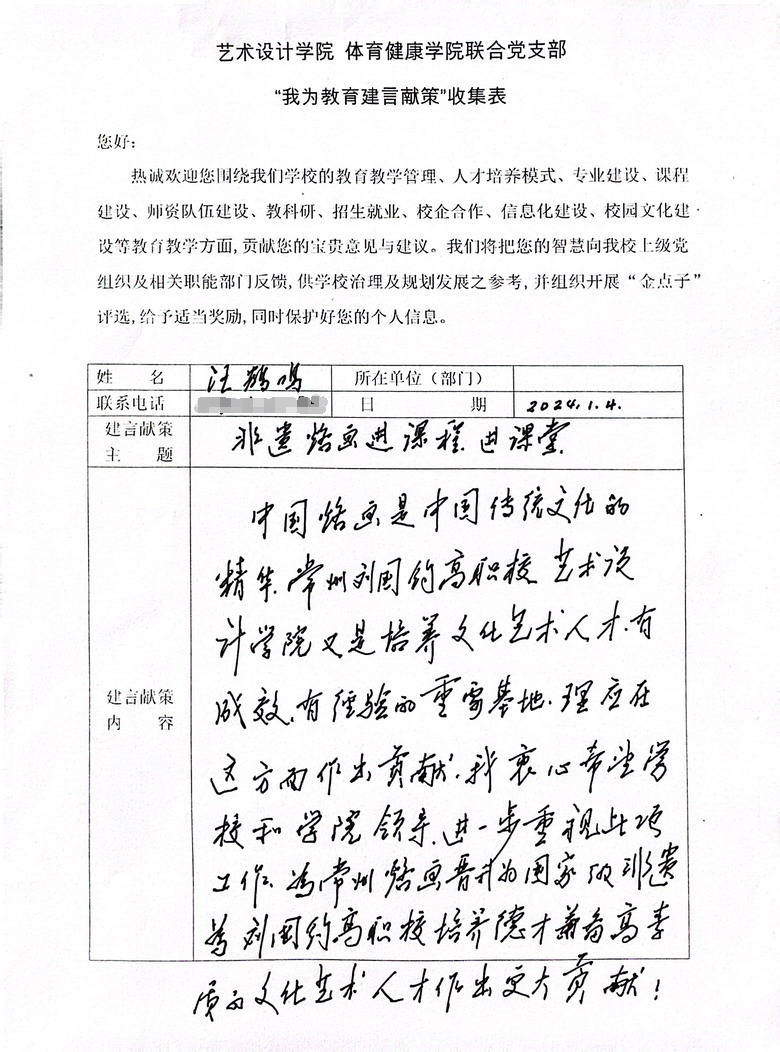 艺术设计学院 体育健康学院联合党支部
“我为教育建言献策”收集表
您好：
热诚欢迎您围绕我们学校的教育教学管理、人才培养模式、专业建设、课程
建设、师资队伍建设、教科研、招生就业、校企合作、信息化建设、校园文化建
设等教育教学方面,贡献您的宝贵意见与建议。我们将把您的智慧向我校上级党
组织及相关职能部门反馈,供学校治理及规划发展之参考,并组织开展“金点子”
评选,给予适当奖励,同时保护好您的个人信息。
姓 名 汪鹤鸣 所在单位（部门）
联系电话 日 期 2024.1.4.
建言献策
主 题
非遗烙画进课程、进课堂
建言献策
内 容
中国烙画是中国传统文化的
精华、常州刘国钧高职校艺术设
计学院又是培养文化艺术人才、有
成效、有经验的重要基地、理应在
这方面作出贡献、我衷心希望学
校和学院领导、进一步重视此项
工作、为常州烙画晋升为国家级非遗
为刘国钧高职校培养德才兼备高素
质的文化艺术人才作出更大贡献！